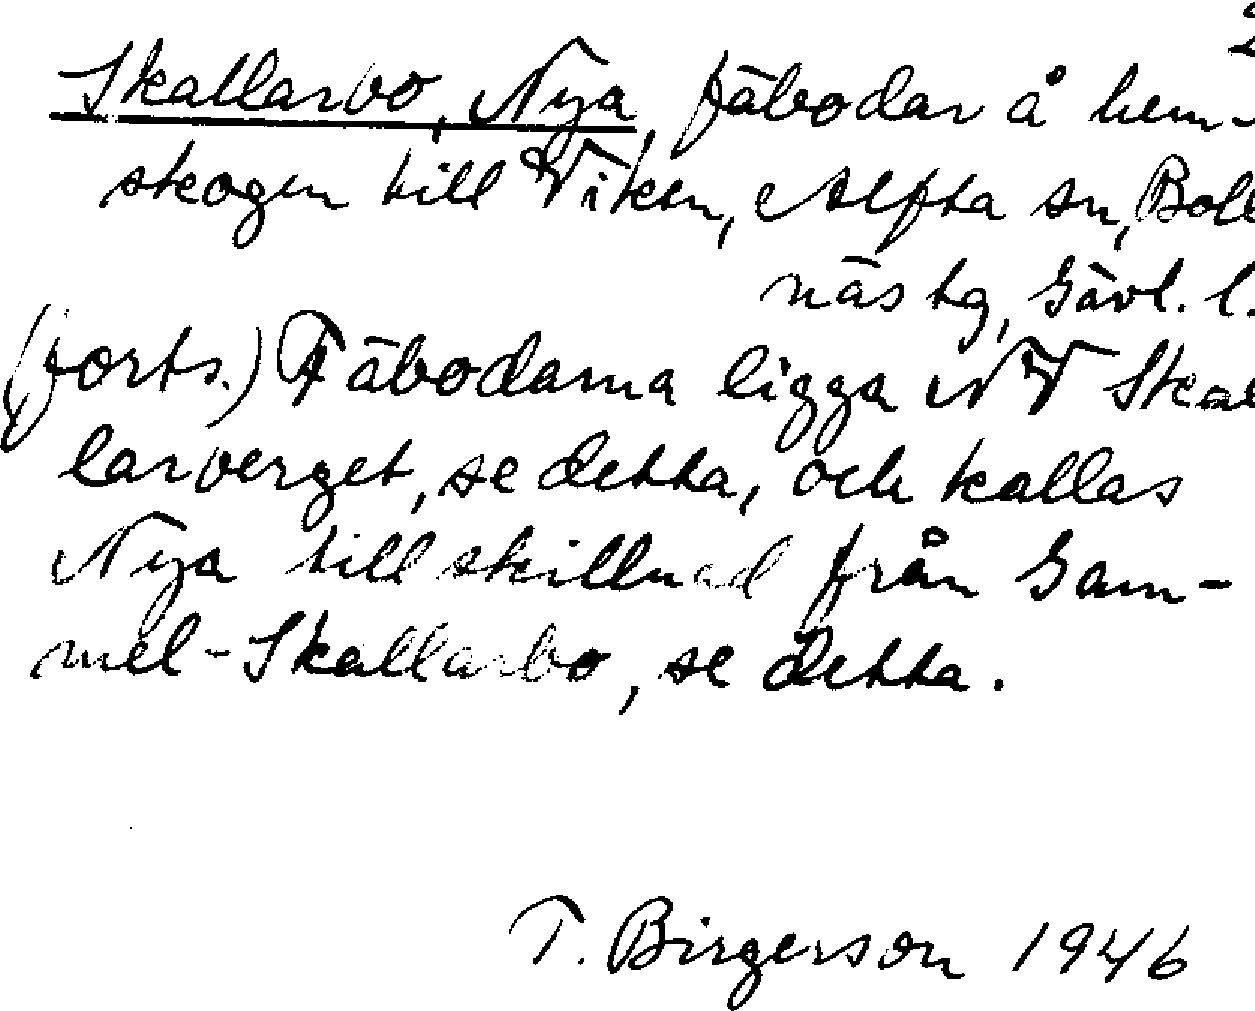 2
Skallarbo, Nya, fäbodar å hem-
skogen till Viken, Alfta sn, Boll
näs tg, Gävl. l.
(forts.) Fäbodarna ligga NV Skal
larberget, se detta, och kallas
Nya till skillnad från Gam-
mel-Skallarbo, se detta.
T. Birgerson 1946